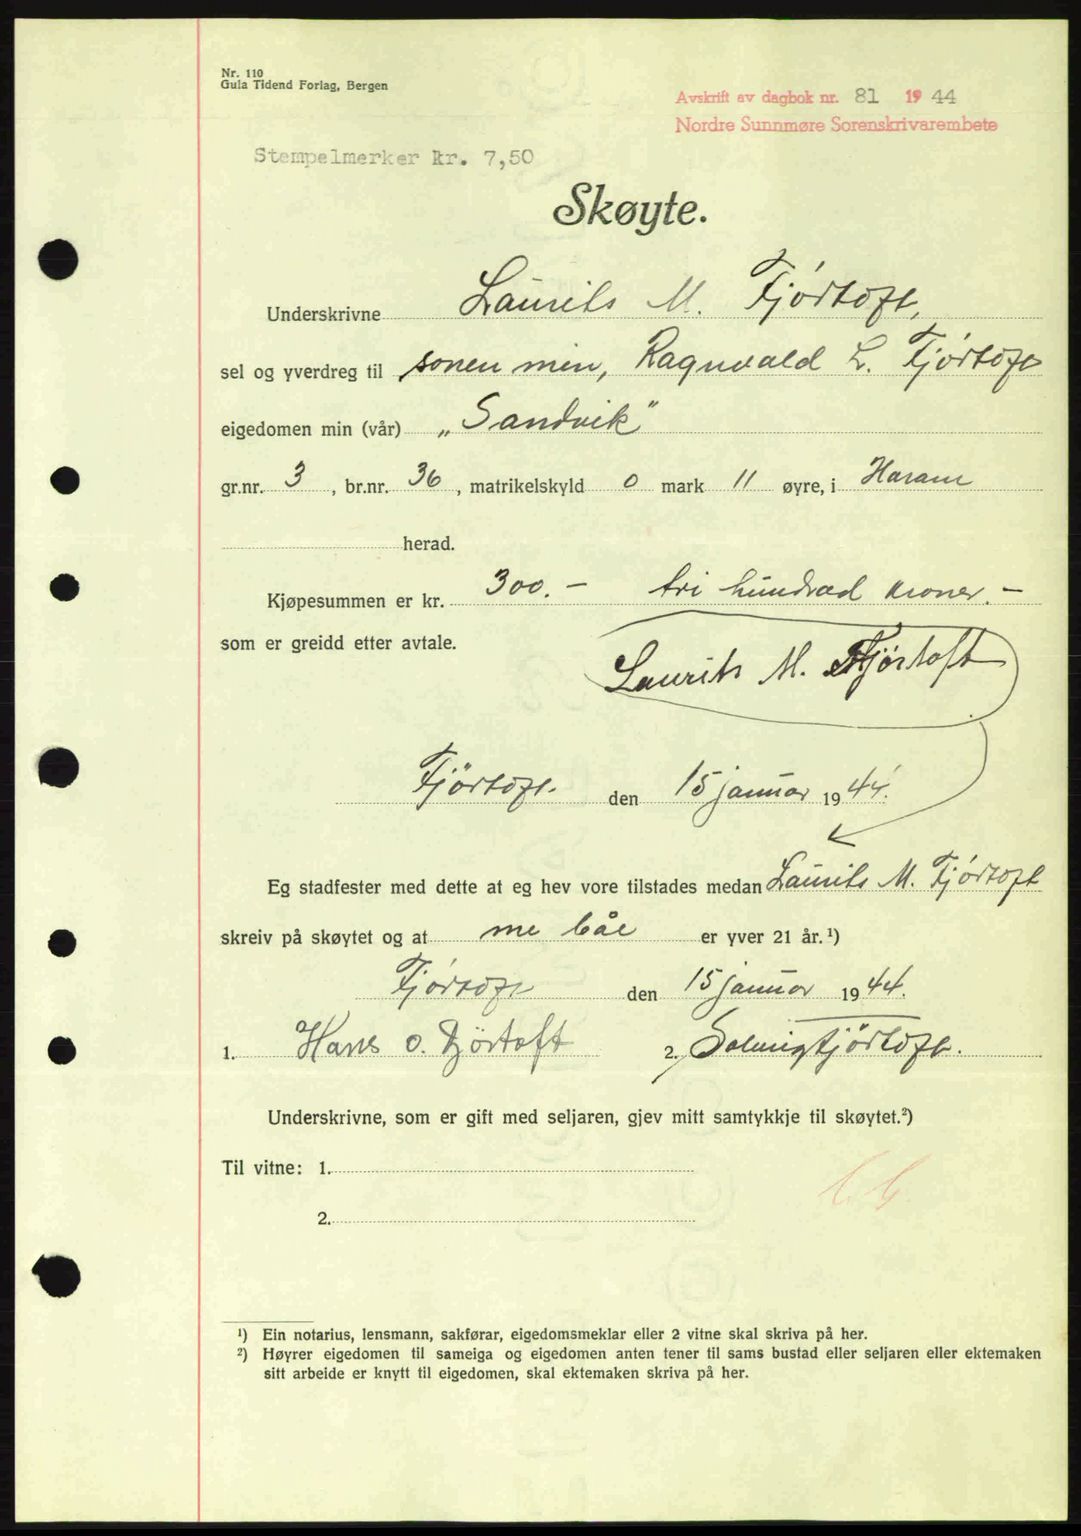 Nr. 110
Gula Tidend Forlag, Bergen
Avskrift av dagbok nr. 81 1944
Nordre Sunnmøre Sorenskrivarembete
Stempelmerker kr. 7,50
Skøyte.
Underskrivne Laurits M. Fjórtoft,
sel og yverdreg til sonen min, Ragnvald L. Fjórtoft
eigedomen min (vår) „Sandvik"
gr.nr. 3, br.nr. 36, matrikelskyld 0 mark 11 øyre, i Haram
herad.
Kjøpesummen er kr. 300.- tri hundrad kroner.-
som er greidd etter avtale.
Laurits M. Fjørtoft
Fjörtoft. den 15 januar 1944.
Eg stadfester med dette at eg hev vore tilstades medan Laurits M. Fjórtoft
skreiv på skøytet og at me båe er yver 21 år.¹)
Fjórtoft den 15 januar 1944.
1. Hans O. Fjörtoft 2. Solveig Fjörtoft.
Underskrivne, som er gift med seljaren, gjev mitt samtykkje til skøytet.²)
Til vitne: 1.
2.
¹) Ein notarius, lensmann, sakførar, eigedomsmeklar eller 2 vitne skal skriva på her.
²) Høyrer eigedomen til sameiga og eigedomen anten tener til sams bustad eller seljaren eller ektemaken
sitt arbeide er knytt til eigedomen, skal ektemaken skriva på her.